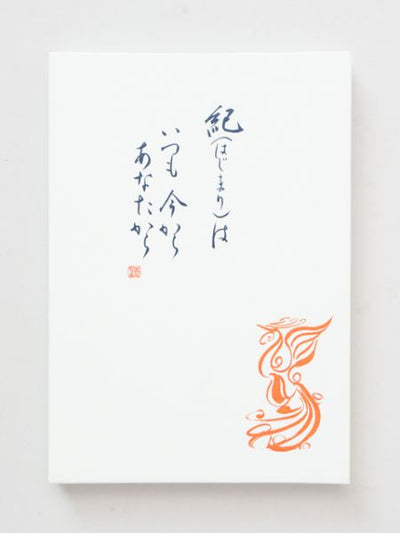 紀(はじまり)は
いつも今から
あなたから